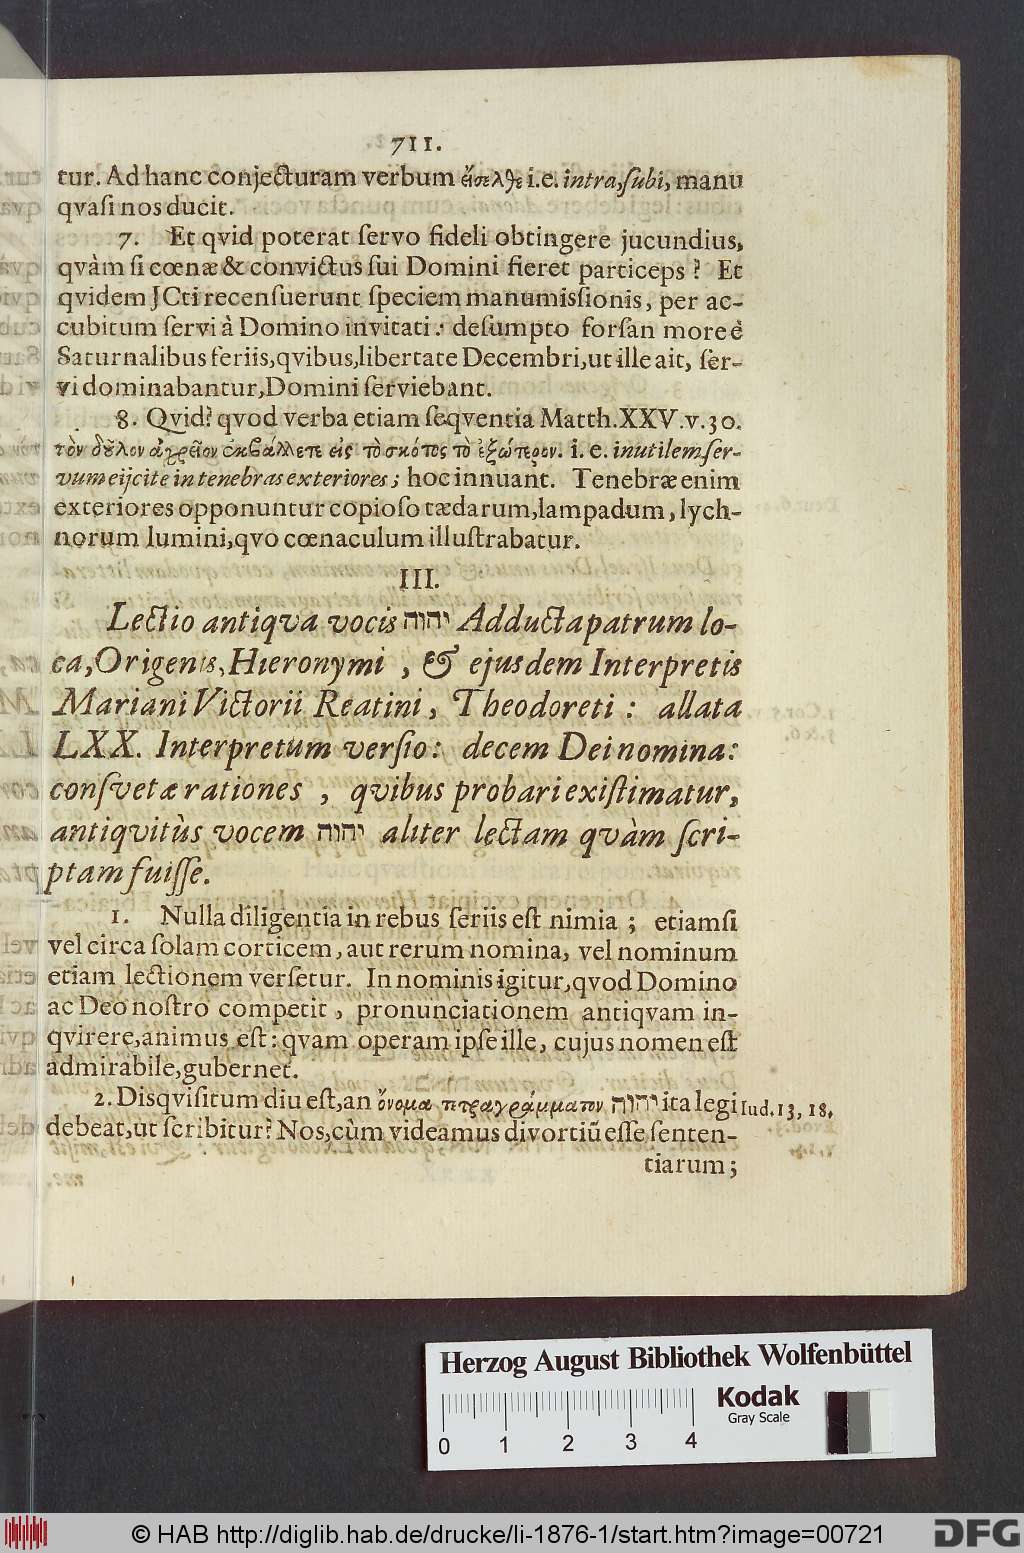 711.
tur. Ad hanc conjecturam verbum εἴσελθε i.e. intra, ſubi, manu
qvaſi nos ducit.
7. Et qvid poterat ſervo fideli obtingere jucundius,
qvàm ſi cœnæ & convictus ſui Domini fieret particeps? Et
qvidem JCti recenſuerunt ſpeciem manumiſsionis, per ac-
cubitum ſervi à Domino invitati: deſumpto forſan more è
Saturnalibus feriis, qvibus, libertate Decembri, ut ille ait, ſer-
vi dominabantur, Domini ſerviebant.
8. Qvid? qvod verba etiam ſeqventia Matth. XXV. v. 30.
τὸν δοῦλον ἀχρεῖον ἐκβάλλετε εἰς τὸ σκότος τὸ ἐξώτερον. i. e. inutilem ſer-
vum eijcite in tenebras exteriores; hoc innuant. Tenebræ enim
exteriores opponuntur copioſo tædarum, lampadum, lych-
norum lumini, qvo cœnaculum illuſtrabatur.
III.
Lectio antiqva vocis יהוה Adducta patrum lo-
ca, Origenis, Hieronymi, & ejusdem Interpretis
Mariani Victorii Reatini, Theodoreti: allata
LXX. Interpretum verſio: decem Dei nomina:
conſvetæ rationes, qvibus probari exiſtimatur,
antiqvitùs vocem יהוה aliter lectam qvàm ſcri-
ptam fuiſſe.
1. Nulla diligentia in rebus ſeriis eſt nimia; etiamſi
vel circa ſolam corticem, aut rerum nomina, vel nominum
etiam lectionem verſetur. In nominis igitur, qvod Domino
ac Deo noſtro competit, pronunciationem antiqvam in-
qvirere, animus eſt: qvam operam ipſe ille, cujus nomen eſt
admirabile, gubernet.
2. Disqviſitum diu eſt, an ὄνομα τετραγράμματον יהוה ita legi Iud. 13, 18.
debeat, ut ſcribitur? Nos, cùm videamus divortiũ eſſe ſenten-
tiarum;
Herzog August Bibliothek Wolfenbüttel
Kodak
Gray Scale
0 1 2 3 4
© HAB http://diglib.hab.de/drucke/li-1876-1/start.htm?image=00721
DFG